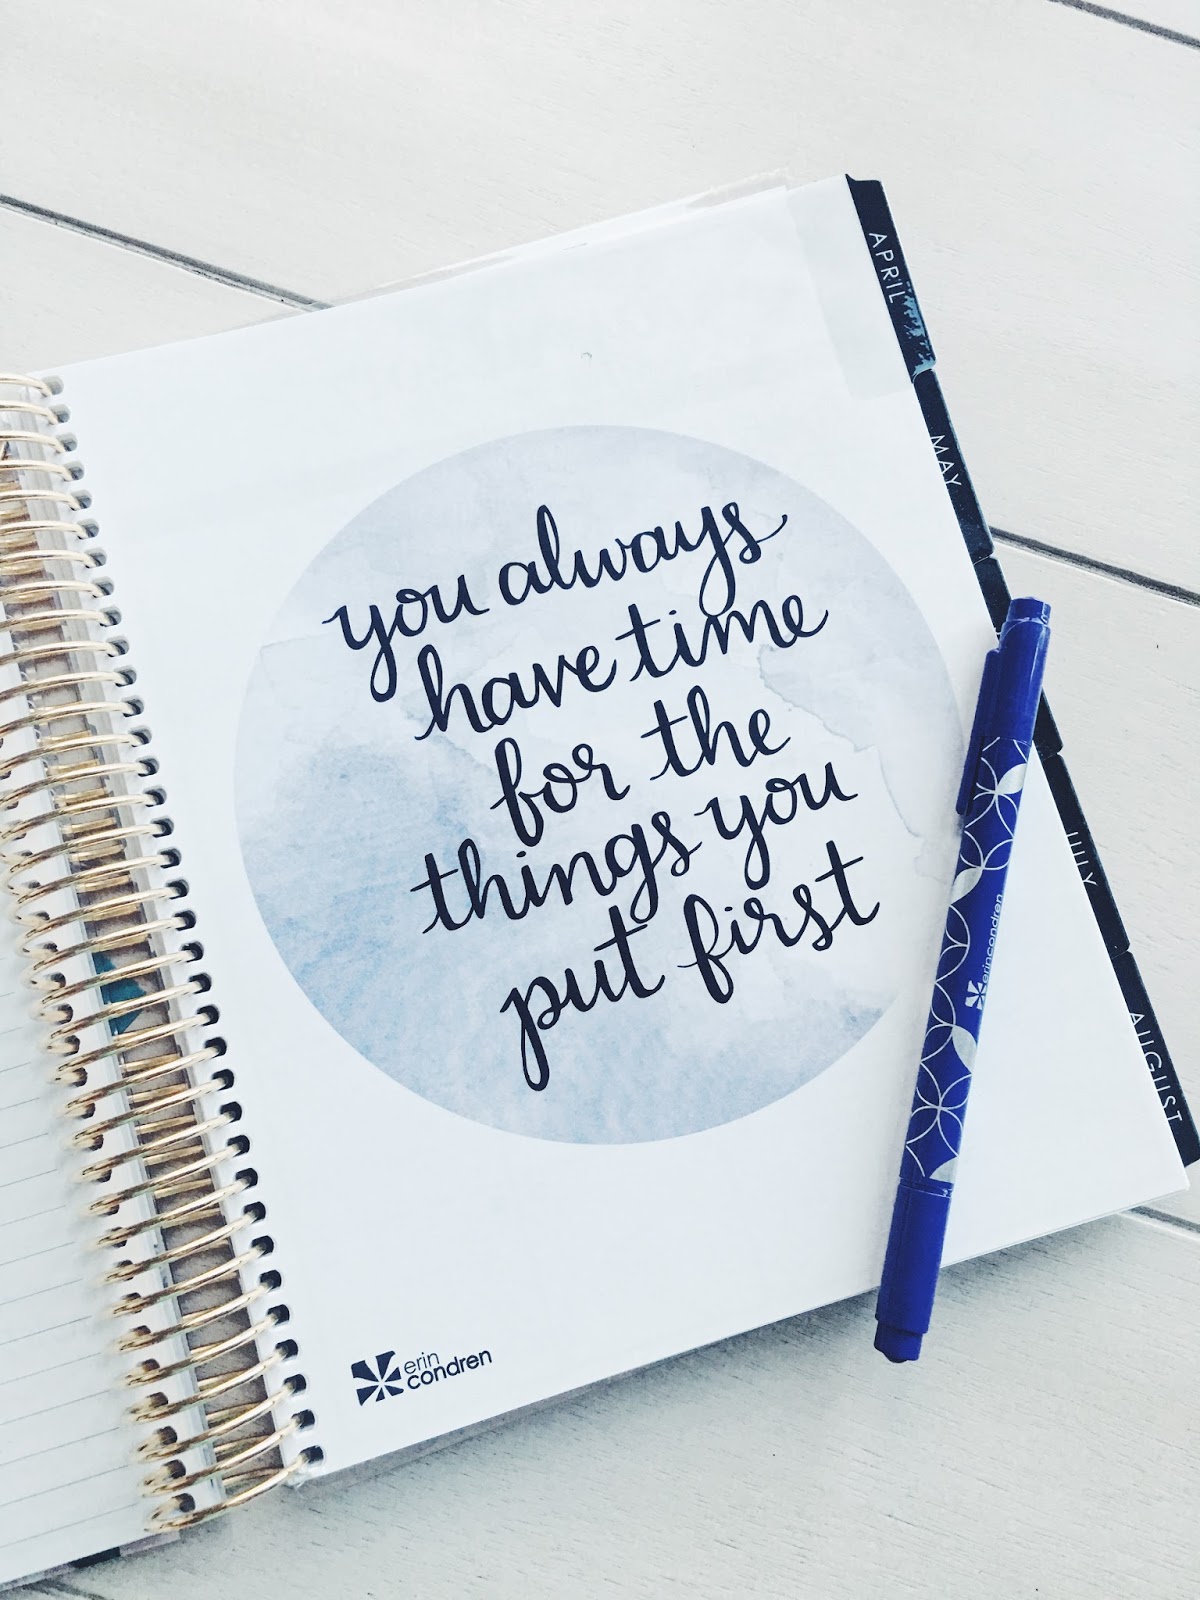 you always
have time
for the
things you
put first
erin
condren
APRIL
MAY
JULY
AUGUST
erincondren